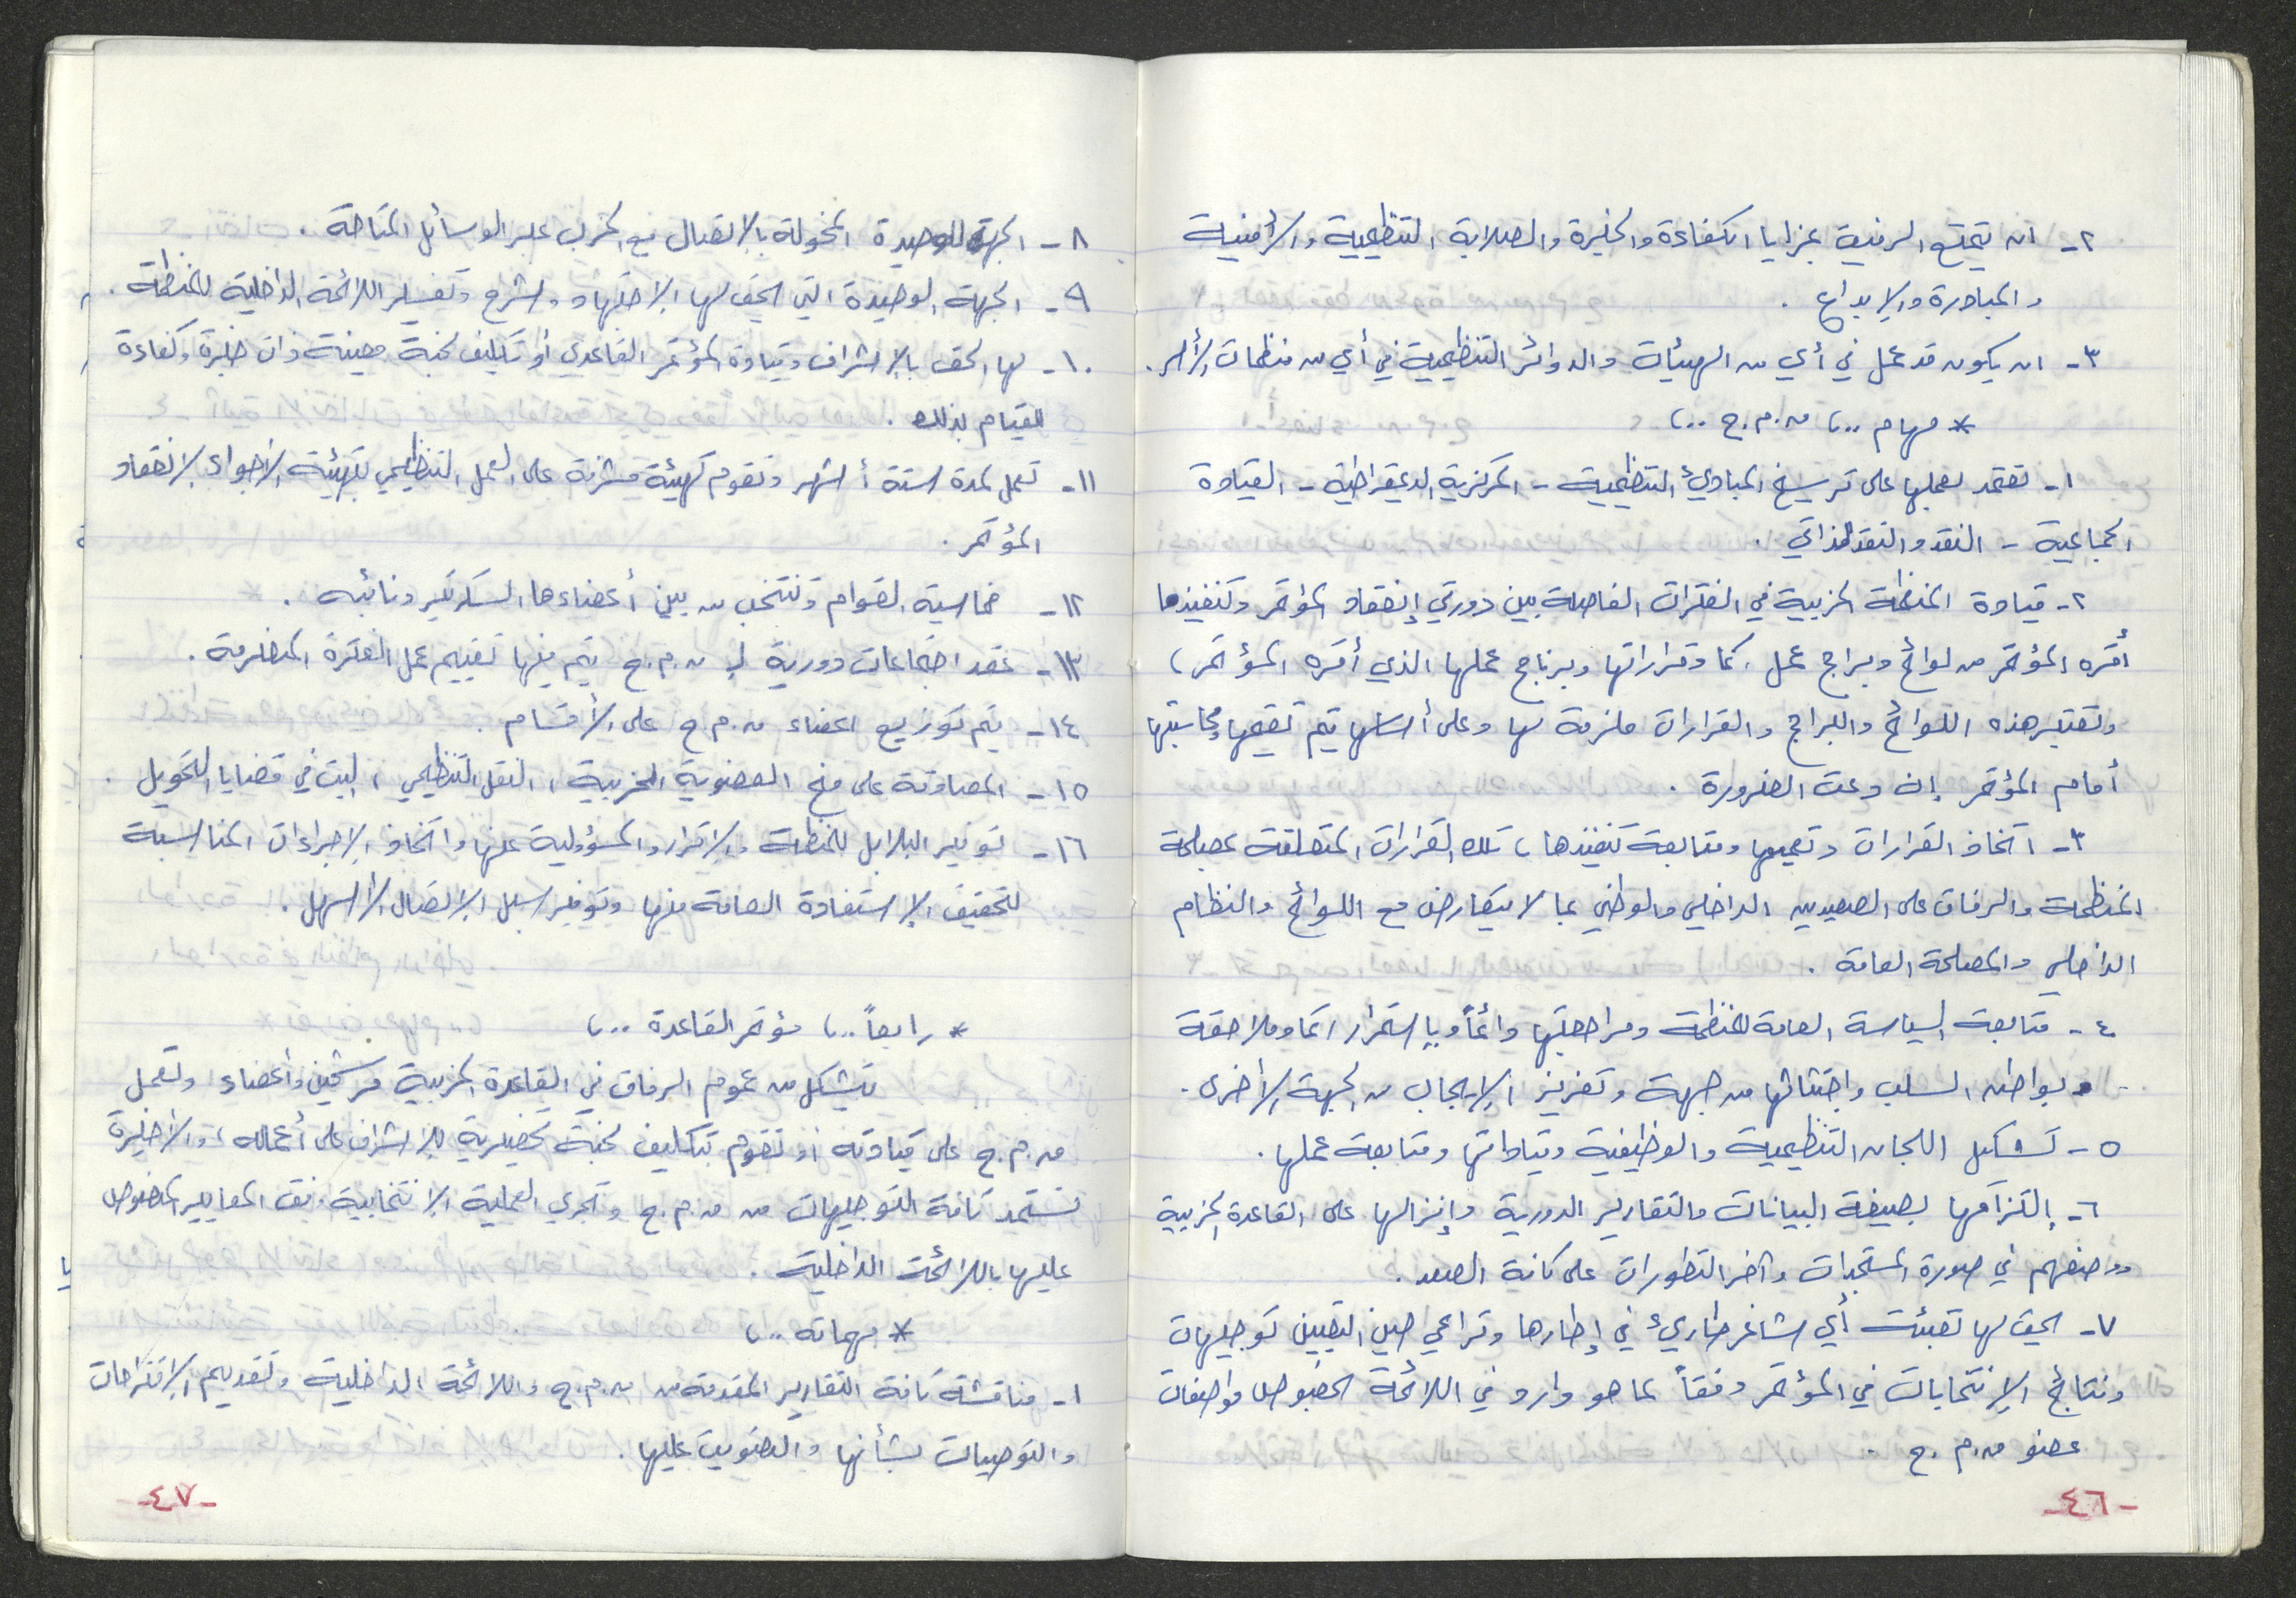 ٢- ان يتمتع الرفيق بمزايا الكفاءة والخبرة والصلابة التنظيمية والأمنية
والمبادرة والإبداع .
٣- ان يكون قد عمل في أي من الهيئات والدوائر التنظيمية في أي من منظمات الأسر .
* مهام ..، م.م.ح ..،
١- تعتمد بعملها على ترسيخ المبادئ التنظيمية - المركزية الديمقراطية - القيادة
الجماعية - النقد والنقد الذاتي .
٢- قيادة المنظمة الحزبية في الفترات الفاصلة بين دورتي إنعقاد المؤتمر وتنفيذ ما
أقره المؤتمر من لوائح وبرامج عمل ، كما وقراراتها وبرنامج عملها الذي أقره المؤتمر ،
وتعتبر هذه اللوائح والبرامج والقرارات ملزمة لها وعلى أساسها يتم تقيمها ومحاسبتها
أمام المؤتمر إن دعت الضرورة .
٣- اتخاذ القرارات وتعميمها ومتابعة تنفيذها ، تلك القرارات المتعلقة بمصلحة
المنظمة والرفاق على الصعيدين الداخلي والوطني بما لا يتعارض مع اللوائح والنظام
الداخلي والمصلحة العامة .
٤- متابعة السياسة العامة للمنظمة ومراجعتها دائماً وبإستمرار كما وملاحقة
بواطن السلب واجتثاثها من جهة وتعزيز الإيجاب من الجهة الأخرى .
٥- تشكيل اللجان التنظيمية والوظيفية وقياداتها ومتابعة عملها .
٦- إلتزامها بصيغة البيانات والتقارير الدورية وإنزالها على القاعدة الحزبية
ووضعهم في صورة المستجدات وآخر التطورات على كافة الصعد .
٧- يحق لها تعبئت أي شاغر طارئ في إطارها وتراعي حين التعيين توجيهات
ونتائج الإنتخابات في المؤتمر وفقاً لما هو وارد في اللائحة بخصوص مواصفات
عضو م.م.ح .
-٤٦-
٨- الجهة الوحيدة المخولة بالإتصال مع الحزب عبر الوسائل المتاحة .
٩- الجهة الوحيدة التي يحق لها الإجتهاد وشرح وتفسير اللائحة الداخلية للمنظمة .
١٠- لها الحق بالإشراف وقيادة المؤتمر القاعدي أو تكليف لجنة معينة ذات خبرة وكفاءة
للقيام بذلك .
١١- تعمل لمدة ستة أشهر وتقوم كهيئة مشرفة على العمل التنظيمي بتهيئة الأجواء لإنعقاد
المؤتمر .
١٢- خماسية القوام وتنتخب من بين أعضاءها السكرتير ونائبه .
١٣- عقد اجتماعات دورية لـ م.م.ح يتم فيها تقييم عمل الفترة المنصرمة .
١٤- يتم توزيع اعضاء م.م.ح على الأقسام .
١٥- المصادقة على منح العضوية الحزبية ، النقل التنظيمي ، البت في قضايا التحويل .
١٦- توفير البلابل للمنظمة والإقرار والمسؤولية عنها واتخاذ الإجراءات المناسبة
لتحقيق الإستفادة العامة منها وتوفير سبل الإتصال الأسهل .
* رابعاً ..، مؤتمر القاعدة ..،
يتشكل من عموم الرفاق في القاعدة الحزبية مرشحين وأعضاء وتعمل
م.م.ح على قيادته أو تقوم بتكليف لجنة تحضيرية للإشراف على أعماله ، والأخيرة
تستمد كافة التوجيهات من م.م.ح وتجري العملية الإنتخابية وفق المعايير المنصوص
عليها باللائحة الداخلية .
* مهماته ..،
١- مناقشة كافة التقارير المقدمة من م.م.ح واللائحة الداخلية وتقديم الإقتراحات
والتوصيات بشأنها والتصويت عليها .
-٤٧-